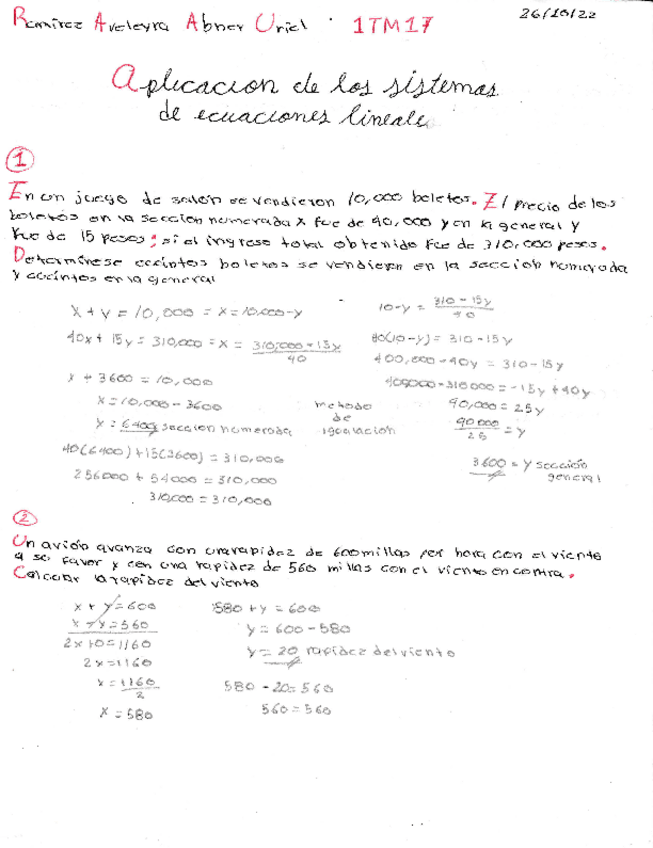 Ramirez Aveleyra Abner Uriel · 1TM17
26/10/22
Aplicacion de los sistemas
de ecuaciones lineale
1
En un juego de salón se vendieron 10,000 boletos. El precio de los
boletos en la seccion numerada x fue de 40,000 y en la general y
fue de 15 pesos; si el ingreso total obtenido fue de 310,000 pesos.
Determinese boletos se vendieron en la sección numerada
y en la general
x + y = 10,000 = x = 10,000 - y
40x + 15y = 310,000 = x = 310,000 - 15y
40
x + 3600 = 10,000
x = 10,000 - 3600
y = 6400 seccion numerada
40(6400) + 15(3600) = 310,000
256000 + 54000 = 310,000
310,000 = 310,000
metodo
de
igualacion
10-y = 310 - 15y
40
40(10-y) = 310 - 15y
400,000 - 40y = 310 - 15y
400000 - 310000 = -15y + 40y
90,000 = 25y
90000 = y
25
3600 = y sección
general
2
Un avión avanza con una rapidez de 600 millas por hora con el viento
a su favor y con una rapidez de 560 millas con el viento en contra.
Calcular la rapidez del viento
x + y = 600
x - y = 560
2x + 0 = 1160
2x = 1160
x = 1160
2
x = 580
580 + y = 600
y = 600 - 580
y = 20 rapidez del viento
580 - 20 = 560
560 = 560